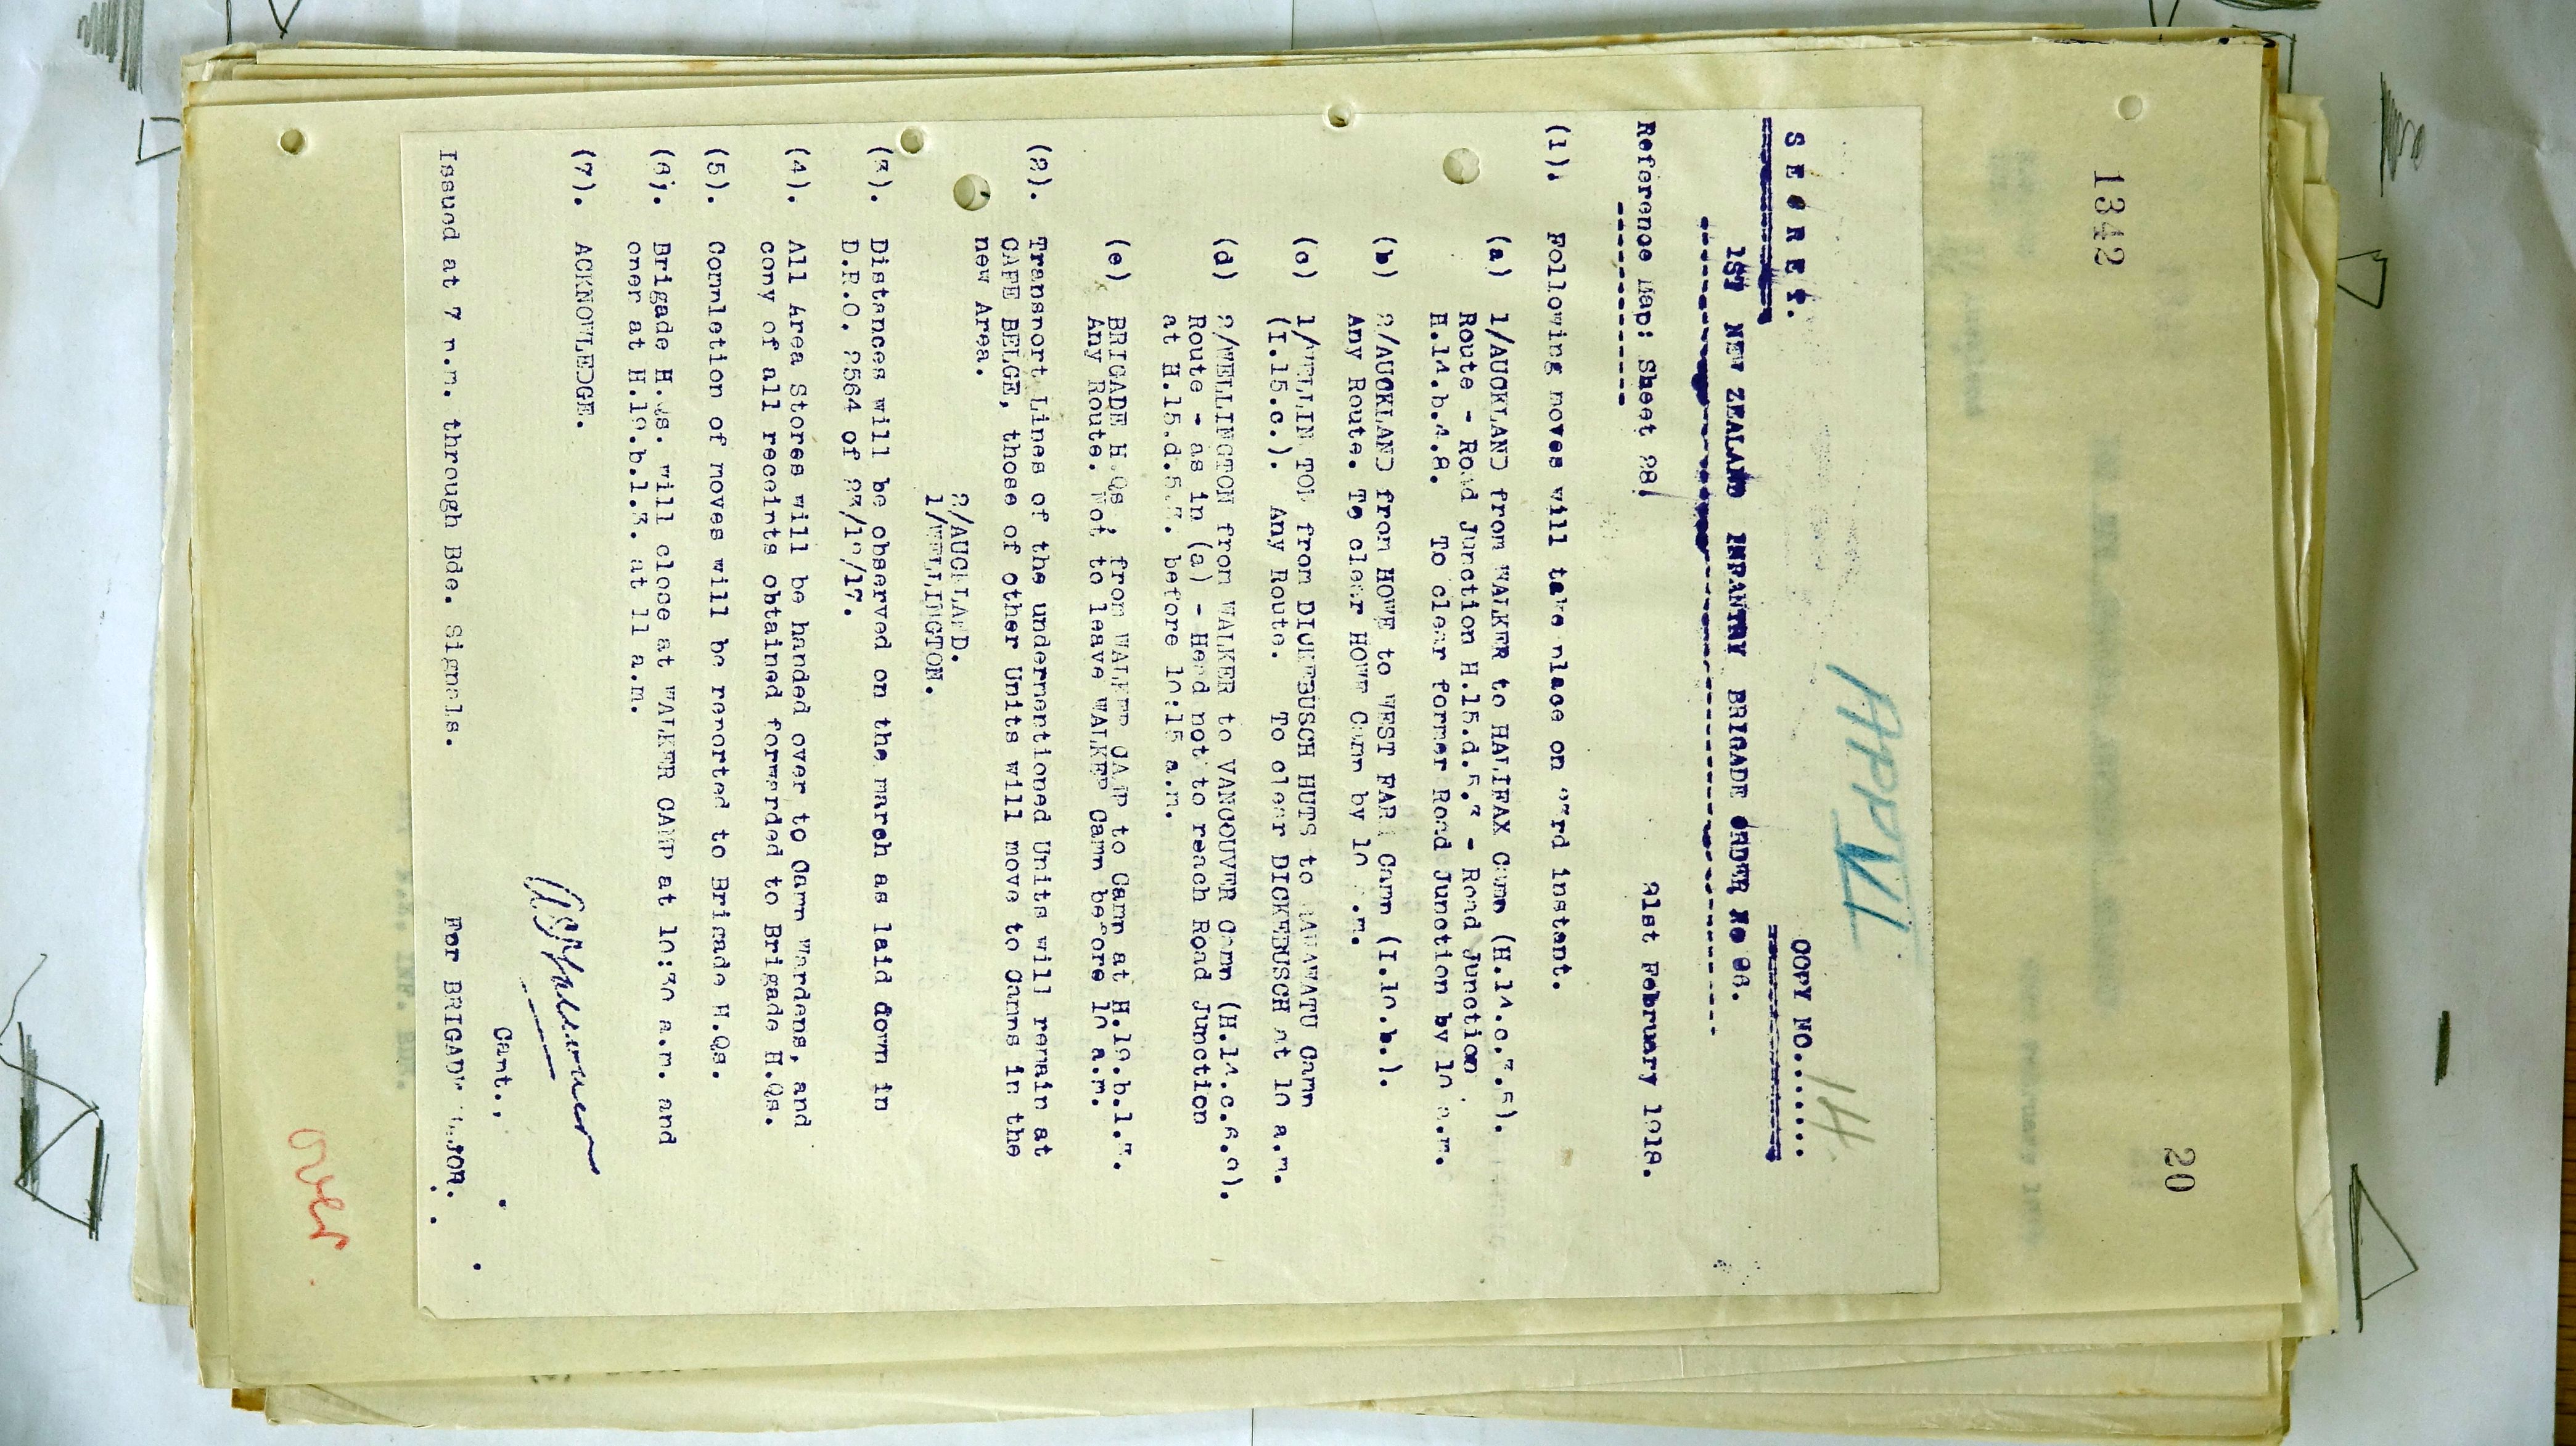 1342
20
APP VI
14
S E C R E T.
COPY NO........
1ST NEW ZEALAND INFANTRY BRIGADE ORDER No 96.
Reference Map: Sheet 28. 21st February 1918.
(1). Following moves will take place on 23rd instant.
(a) 1/AUCKLAND from WALKER to HALIFAX Camp (H.14.c.7.5).
Route - Road Junction H.15.d.5.7 - Road Junction
H.14.b.4.8. To clear former Road Junction by 10 a.m.
(b) 2/AUCKLAND from HOWE to WEST FARM Camp (I.10.b.).
Any Route. To clear HOWE Camp by 10 a.m.
(c) 1/WELLINGTON from DICKEBUSCH HUTS to MANAWATU Camp
(I.15.c.). Any Route. To clear DICKEBUSCH at 10 a.m.
(d) 2/WELLINGTON from WALKER to VANCOUVER Camp (H.14.c.6.0).
Route - as in (a) - Head not to reach Road Junction
at H.15.d.5.7. before 10:15 a.m.
(e) BRIGADE H.Qs, from WALKER CAMP to Camp at H.19.b.1.3.
Any Route. Not to leave WALKER Camp before 10 a.m.
(2). Transport Lines of the undermentioned Units will remain at
CAFE BELGE, those of other Units will move to Camps in the
new Area.
2/AUCKLAND.
1/WELLINGTON.
(3). Distances will be observed on the march as laid down in
D.R.O. 2564 of 23/10/17.
(4). All Area Stores will be handed over to Camp Wardens, and
copy of all receipts obtained forwarded to Brigade H.Qs.
(5). Completion of moves will be reported to Brigade H.Qs.
(6). Brigade H.Qs. will close at WALKER CAMP at 10:30 a.m. and
open at H.19.b.1.3. at 11 a.m.
(7). ACKNOWLEDGE.
Capt.,
Issued at 7 p.m. through Bde. Signals. For BRIGADE MAJOR.
over